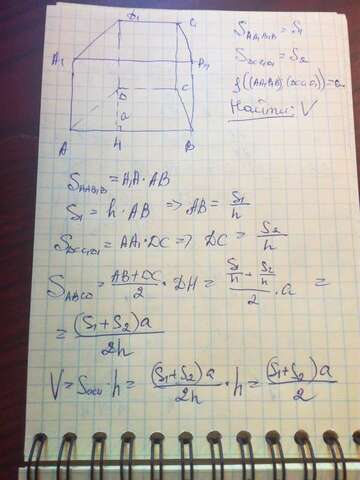 D₁ C₁
A₁ B₁
D C
a
A H B
S_{AA₁B₁B} = S₁
S_{DCC₁D₁} = S₂
ρ((AA₁B₁B);(DCC₁D₁)) = a
Найти: V
S_{AA₁B₁B} = A₁A · AB
S₁ = h · AB ⇒ AB = S₁/h
S_{DCC₁D₁} = AA₁ · DC ⇒ DC = S₂/h
S_{ABCD} = (AB+DC)/2 · DH = (S₁/h + S₂/h)/2 · a =
= (S₁+S₂)a/2h
V = Sосн · h = (S₁+S₂)a/2h · h = (S₁+S₂)a/2